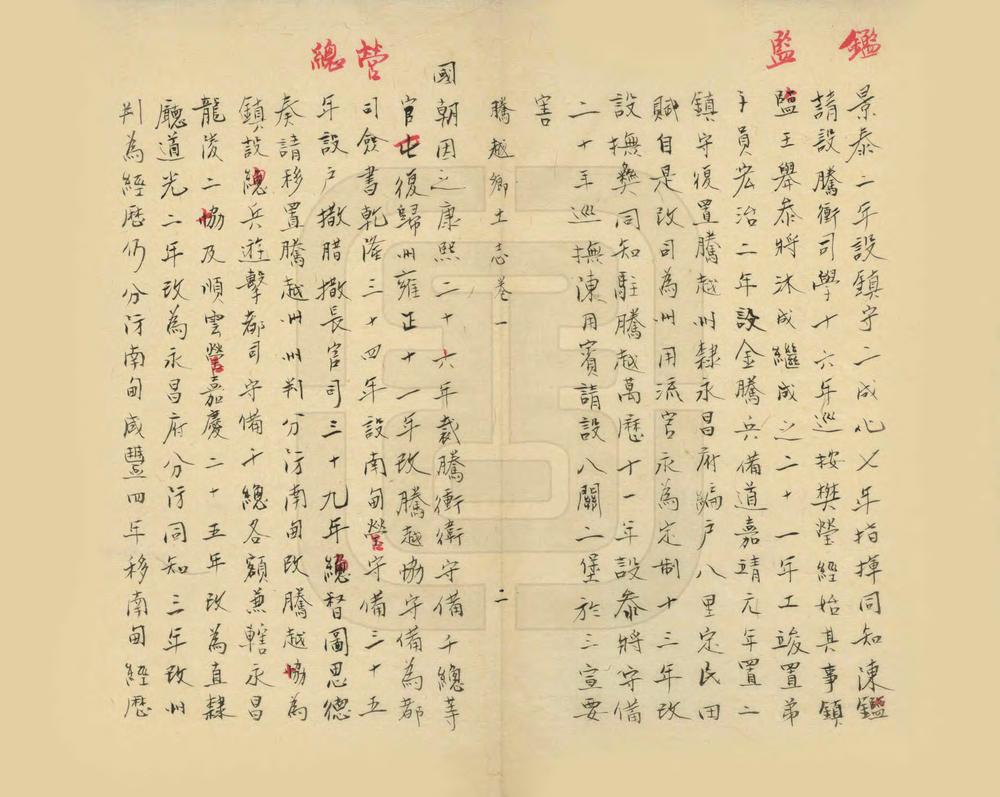 鑑
監
景泰二年設鎮守二成化七年指揮同知陳鑑
請設騰衝司學十六年巡按樊瑩經始其事鎮
監王舉叅將沐成繼成之二十一年工竣置弟
子員宏治二年設金騰兵備道嘉靖元年置二
鎮守復置騰越州隸永昌府編户八里定民田
賦自是改司為州用流官永為定制十三年改
設撫彝同知駐騰越萬歷十一年設叅將守備
二十年巡撫陳用賓請設八關二堡於三宣要
害
騰越鄉土志卷一 二
營
總
國朝因之康熙二十六年裁騰衝衛守備千總等
官屯復歸州雍正十一年改騰越協守備為都
司僉書乾隆三十四年設南甸營守備三十五
年設户撒腊撒長官司三十九年總督圖思德
奏請移置騰越州州判分汛南甸改騰越協為
鎮設總兵遊擊都司守備千總各額兼轄永昌
龍陵二協及順雲營嘉慶二十五年改為直隸
廳道光二年改為永昌府分汛同知三年改州
判為經歷仍分汛南甸咸豐四年移南甸經歷